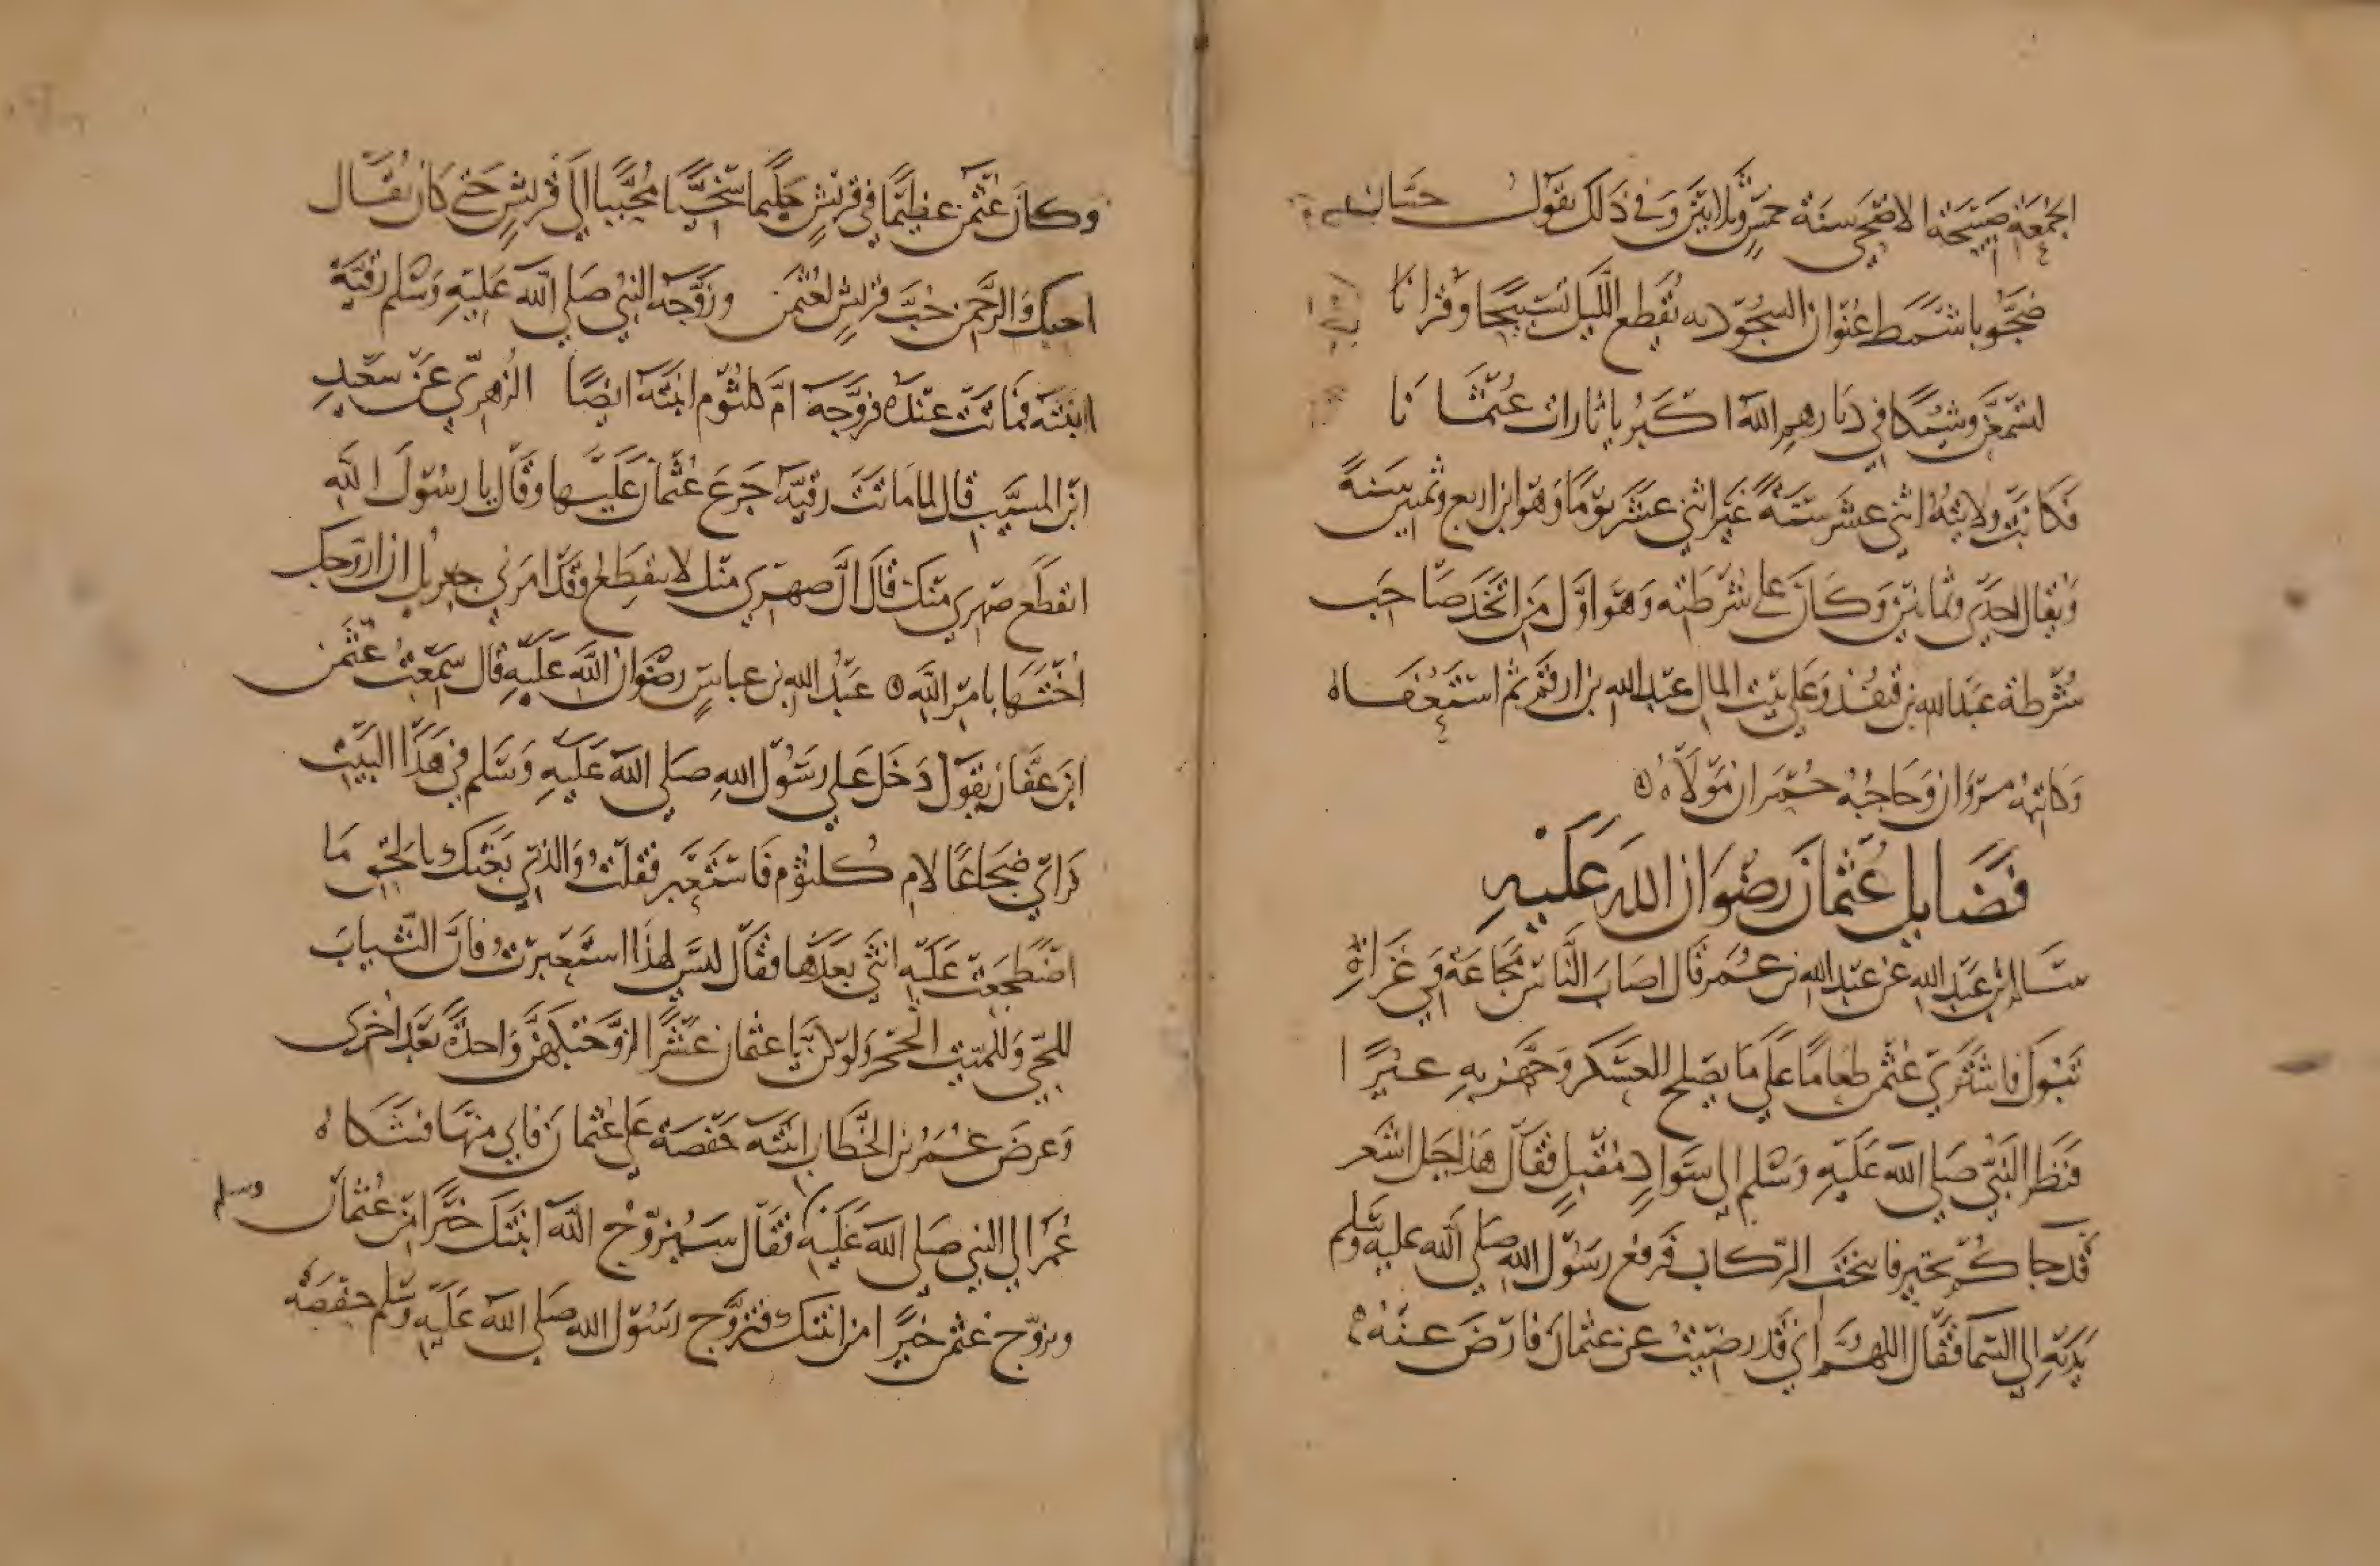 الجمعة صبيحة الاضحى سنة خمس وثلاثين وفي ذلك يقول حسان
ضحوا باشمط عنوان السجود به يقطع الليل تسبيحا وقرانا
لتسمعن وشيكا في ديارهم الله اكبر يا ثارات عثمانا
فكانت ولايته اثنى عشر سنة غير اثنى عشر يوما وهو ابن اربع وثمنين سنة
ويقال احدى وثمانين وكان على شرطته وهو اول من اتخذ صاحب
شرطة عبد الله بن قنفذ وعلى بيت المال عبد الله بن ارقم ثم استعفاه
وكاتبه مروان وحاجبه حمران مولاه
فضايل عثمان رضوان الله عليه
سالم بن عبد الله عن عبد الله بن عمر قال اصاب الناس مجاعة في غزاة
تبوك فاشترى عثمن طعاما على ما يصلح العسكر وجهز به عيرا
فنظر النبي صلى الله عليه وسلم الى سواد مقبل فقال هذا جمل اشعر
قد جاكم بخير فانيخت الركاب فرفع رسول الله صلى الله عليه وسلم
يديه الى السما فقال اللهم اني قد رضيت عن عثمان فارض عنه
وكان عثمن عظيما في قريش حليما سخيا محببا الى قريش حتى كان يقال
احبك والرحمن حب قريش لعثمن وزوجه النبي صلى الله عليه وسلم رقية
ابنته فماتت عنده فزوجه ام كلثوم ابنته ايضا الزهري عن سعيد
ابن المسيب قال لما ماتت رقية جزع عثمان عليها وقال يا رسول الله
انقطع صهري منك قال ان صهرك مني لا ينقطع وقد امرني جبريل ان ازوجك
اختها بامر الله عبد الله بن عباس رضوان الله عليه قال سمعت عثمن
ابن عفان يقول دخل علي رسول الله صلى الله عليه وسلم في هذا البيت
فراى ضجاعا لام كلثوم فاستعبر فقلت والذي بعثك بالحق ما
اضطجعت عليه انثى بعدها فقال ليس لهذا استعبرت فان الثياب
للحي وللميت الحجر ولو كن يا عثمان عشرا لزوجتكهن واحدة بعد اخرى
وعرض عمر بن الخطاب ابنته حفصة على عثمان فابى منها فشكاه
عمر الى النبي صلى الله عليه وسلم فقال سيزوج الله ابنتك خيرا من عثمان
ويزوج عثمن خيرا من ابنتك فتزوج رسول الله صلى الله عليه وسلم حفصة